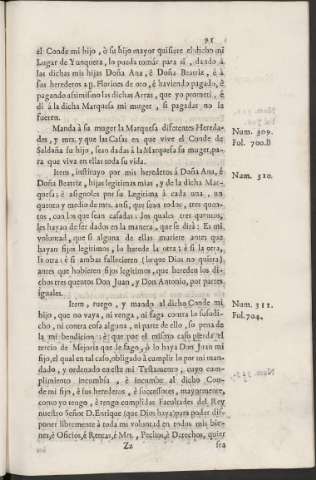 91
el Conde mi hijo, ò su hijo mayor quisiere el dicho mi
Lugar de Yunquera, lo pueda tomar para sì, dando à
las dichas mis hijas Doña Ana, è Doña Beatriz, è à
sus herederos 2U. Florines de oro, è haviendo pagado, è
pagando assimismo las dichas Arras, que yo prometì, è
dì à la dicha Marquesa mi muger, si pagadas no la
fueren.
Manda à su muger la Marquesa diferentes Hereda-
des, y mrs. y que las Casas en que vive el Conde de
Saldaña su hijo, sean dadas à la Marquesa su muger, pa-
ra que viva en ellas toda su vida.
Num. 309.
Fol. 700.B
Item, instituyo por mis herederos à Doña Ana, è
Doña Beatriz, hijas legitimas mias, y de la dicha Mar-
quesa; è asignoles por su Legitima à cada una, un
quento y medio de mrs. assi, que sean todos, tres quen-
tos, con los que sean casadas: los quales tres quentos,
les hayan de ser dados en la manera, que se dirà: Es mi
voluntad, que si alguna de ellas muriere antes que
hayan fijos legitimos, la herede la otra; è si la otra,
la otra; è si ambas fallecieren (lo que Dios no quiera)
antes que hobieren fijos legitimos, que hereden los di-
chos tres quentos Don Juan, y Don Antonio, por partes
iguales.
Num. 310.
Item, ruego, y mando al dicho Conde mi
hijo, que no vaya, ni venga, ni faga contra lo susodi-
cho, ni contra cosa alguna, ni parte de ello, so pena de
la mi bendicion: è que por el mismo caso pierda el
tercio de Mejoria que le fago, è lo haya Don Juan mi
fijo, el qual en tal caso, obligado à cumplir lo por mi man-
dado, y ordenado en este mi Testamento, cuyo cum-
plimiento incumbia, è incumbe al dicho Con-
de mi fijo, è sus herederos, è successores, mayormente,
como yo tengo, è tengo cumplidas Facultades del Rey
nuestro Señor D. Enrique (que Dios haya) para poder dis-
poner libremente à toda mi voluntad en todos mis bie-
nes, è Oficios, è Rentas, è Mrs, Pechos, è Derechos, quier
Num. 311.
Fol. 704.
Z2
sea